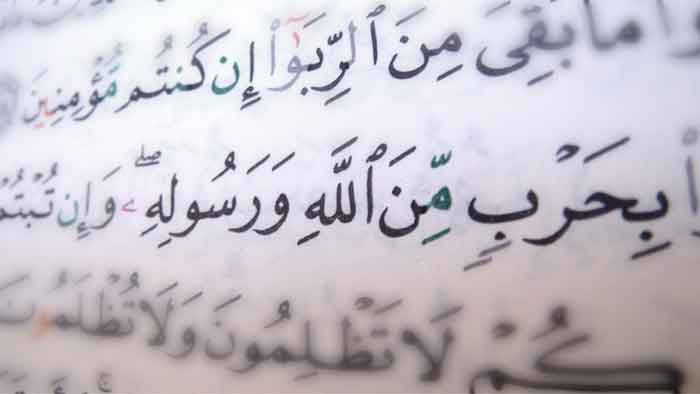 مَا بَقِىَ مِنَ ٱلرِّبَوٰٓا۟ إِن كُنتُم مُّؤْمِنِينَ
بِحَرْبٍ مِّنَ ٱللَّهِ وَرَسُولِهِۦ ۖ وَإِن تُبْتُمْ
كُمْ لَا تَظْلِمُونَ وَلَا تُظْلَمُونَ